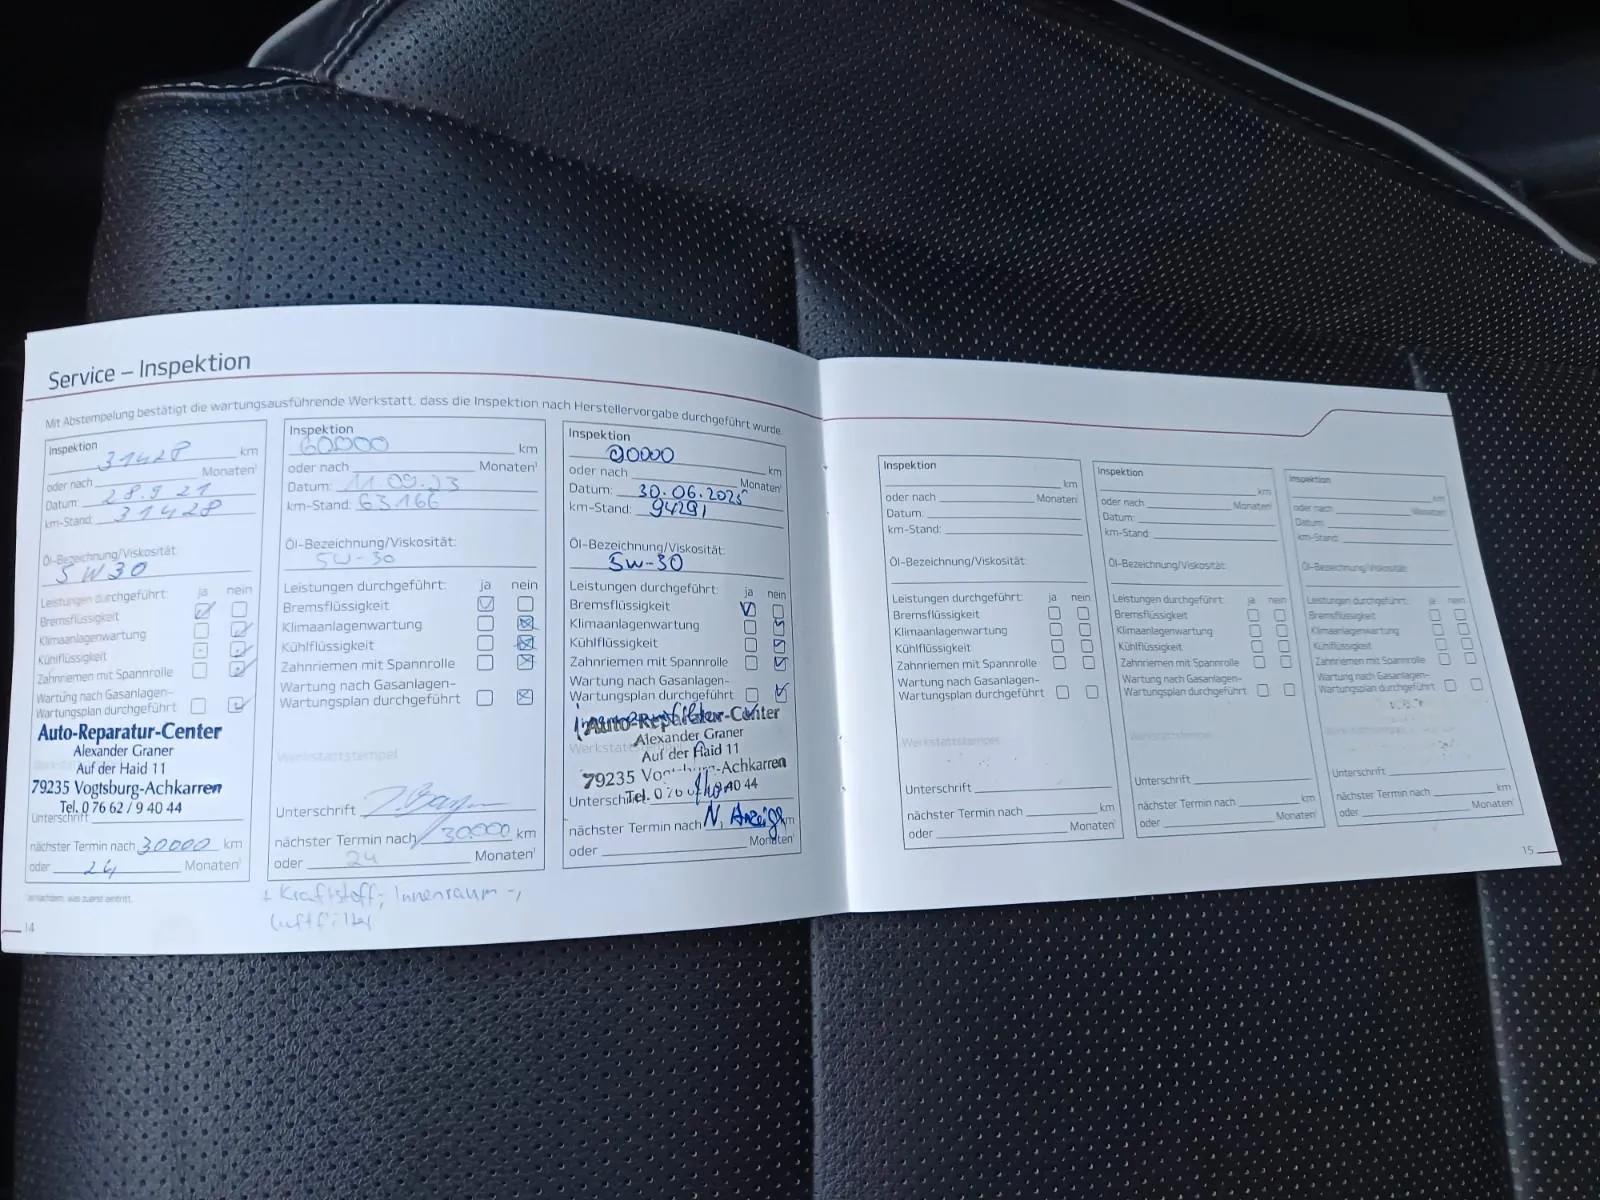 Service – Inspektion
Mit Abstempelung bestätigt die wartungsausführende Werkstatt, dass die Inspektion nach Herstellervorgabe durchgeführt wurde.
Inspektion
31428 km
oder nach Monaten¹
Datum: 28.9 21
km-Stand: 31428
Öl-Bezeichnung/Viskosität:
5 W 30
Leistungen durchgeführt: ja nein
Bremsflüssigkeit
Klimaanlagenwartung
Kühlflüssigkeit
Zahnriemen mit Spannrolle
Wartung nach Gasanlagen-
Wartungsplan durchgeführt
Auto-Reparatur-Center
Alexander Graner
Auf der Haid 11
79235 Vogtsburg-Achkarren
Tel. 0 76 62 / 9 40 44
Unterschrift
nächster Termin nach 30000 km
oder 24 Monaten¹
¹ je nachdem, was zuerst eintritt.
14
Inspektion
60000 km
oder nach Monaten¹
Datum: 11.09.23
km-Stand: 63166
Öl-Bezeichnung/Viskosität:
5W-30
Leistungen durchgeführt: ja nein
Bremsflüssigkeit
Klimaanlagenwartung
Kühlflüssigkeit
Zahnriemen mit Spannrolle
Wartung nach Gasanlagen-
Wartungsplan durchgeführt
Werkstattstempel
Unterschrift
nächster Termin nach 30000 km
oder 24 Monaten¹
+ Kraftstoff-, Innenraum-,
Luftfilter
Inspektion
90000 km
oder nach Monaten¹
Datum: 30.06.2025
km-Stand: 94291
Öl-Bezeichnung/Viskosität:
5w-30
Leistungen durchgeführt: ja nein
Bremsflüssigkeit
Klimaanlagenwartung
Kühlflüssigkeit
Zahnriemen mit Spannrolle
Wartung nach Gasanlagen-
Wartungsplan durchgeführt
Innenraumfilter
Auto-Reparatur-Center
Alexander Graner
Werkstattstempel
Auf der Haid 11
79235 Vogtsburg-Achkarren
Unterschrift Tel. 0 40 44
nächster Termin nach N. Anzeige km
oder Monaten¹
Inspektion
km
oder nach Monaten¹
Datum:
km-Stand:
Öl-Bezeichnung/Viskosität:
Leistungen durchgeführt: ja nein
Bremsflüssigkeit
Klimaanlagenwartung
Kühlflüssigkeit
Zahnriemen mit Spannrolle
Wartung nach Gasanlagen-
Wartungsplan durchgeführt
Werkstattstempel
Unterschrift
nächster Termin nach km
oder Monaten¹
Inspektion
km
oder nach Monaten¹
Datum:
km-Stand:
Öl-Bezeichnung/Viskosität:
Leistungen durchgeführt: ja nein
Bremsflüssigkeit
Klimaanlagenwartung
Kühlflüssigkeit
Zahnriemen mit Spannrolle
Wartung nach Gasanlagen-
Wartungsplan durchgeführt
Werkstattstempel
Unterschrift
nächster Termin nach km
oder Monaten¹
Inspektion
km
oder nach Monaten¹
Datum:
km-Stand:
Öl-Bezeichnung/Viskosität:
Leistungen durchgeführt: ja nein
Bremsflüssigkeit
Klimaanlagenwartung
Kühlflüssigkeit
Zahnriemen mit Spannrolle
Wartung nach Gasanlagen-
Wartungsplan durchgeführt
Werkstattstempel
Unterschrift
nächster Termin nach km
oder Monaten¹
15